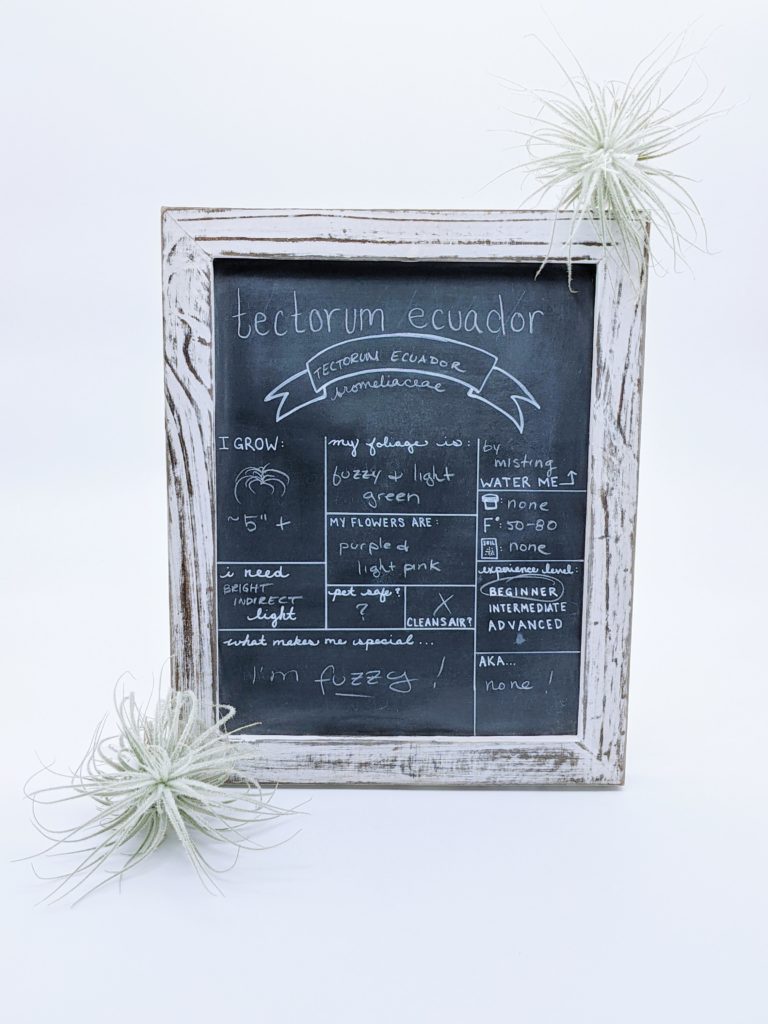 tectorum ecuador
TECTORUM ECUADOR
bromeliaceae
I GROW:
~5" +
my foliage is:
fuzzy & light
green
MY FLOWERS ARE:
purple &
light pink
by
misting
WATER ME
: none
F°: 50-80
SOIL : none
i need
BRIGHT
INDIRECT
light
pet safe?
?
X
CLEANS AIR?
experience level:
BEGINNER
INTERMEDIATE
ADVANCED
what makes me special...
I'm fuzzy!
AKA...
none!